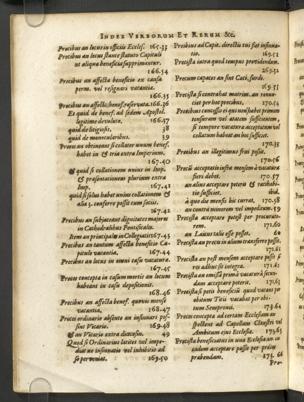 INDEX VERBORUM ET RERUM &c.
Precibus an locus in officiis Eccles. 165.33
Precibus an locus stante statuto Capituli
ut aliqua beneficia supprimantur.
166.34
Precibus an affecta beneficia ex causa
perm. vel resignati vacantia.
166.35
Precibus an affecta benef. reservata. 166.36
Et quid de benef. ad sedem Apostol.
legitime devoluto. 166.37
quid de litigiosis. 38
quid de manualibus. 39
Preces an obtineant si collator unum benef.
habet in & tria extra Imperium.
167.40
& quid si collationem unius in Imp.
& præsentationem plurium extra
Imp. 167.41
quid si solus habet unius collationem &
alia 3. conferre possit cum sociis.
167.42
Precibus an subjaceant dignitates majores
in Cathedralibus Pontificales.
Item an principales in Collegiatis 167.43
Precibus an tantum affecta beneficia Ca-
pitulo vacantia. 167.44
Precibus an locus in omni casu vacatur.
167.45
Preces concepta in casum mortis an locum
habeant in casu depositionis.
168.46
Precibus an affecta benef. quovis mense
vacantia. 168.47
Preces ordinario absente an insinuari pos-
sint Vicario. 169.48
& an Vicario extra diœcesin. 49
Quid si Ordinarius latitet vel impe-
diat ne insinuatio vel inhibitio ad
se perveniat. 169.50
Precibus an Capit. directis tui fiat insinua-
tio. 169.51
Precista intra quod tempus providendum.
169.52
Precum capaces an sint Cæci, surdi.
169.53
Precista si contrahat matrim. an renun-
ciet per hoc precibus. 170.54
Precibus
tonsuram vel ætatem sufficientem,
si tempore vacatura acceptatum vel
collatum habeat an hoc sufficiat.
170.55
Precibus an illegitimus frui possit.
170.56
Precista acceptatis infra mensem à vacatura
fieri debet. 170.57
an alius acceptare potest & ratihabi-
tio sufficiat. ibid.
à quo die mensis hic currat. 170.58
an contra minorem vel impeditum. 59
Precista acceptare potest per procurato-
rem. 171.60
an Laicus talis esse possit. 61
Precista an preces in alium transferre possit.
171.62
Precista an post mensem acceptare possit si
rei adhuc sit integra. 171.63
Precista an omissa prima vacatura à secun-
dam acceptare potest. 172.63
Precista si petit beneficia quod vacavit per
obitum Titii vacabat per obi-
tum Sempronii. 173.64
Preces concepta ad certam Ecclesiam an
spectent ad Capellam Claustri vel
Ambitum ejus Ecclesiæ. 173.65
Precista beneficiatus in una Ecclesia an ea-
eadem acceptare possit per preces
prabendam. 173.66
Pre-